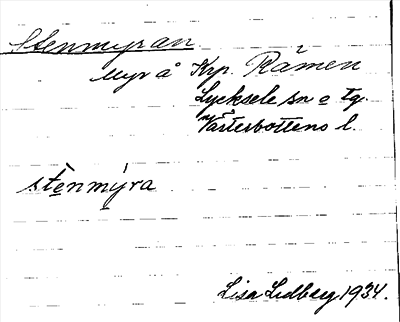 Stenmyran
Myr å Krp. Råmen
Lycksele sn o tg.
Västerbottens l.
stènmýra
Lisa Lidberg 1934.